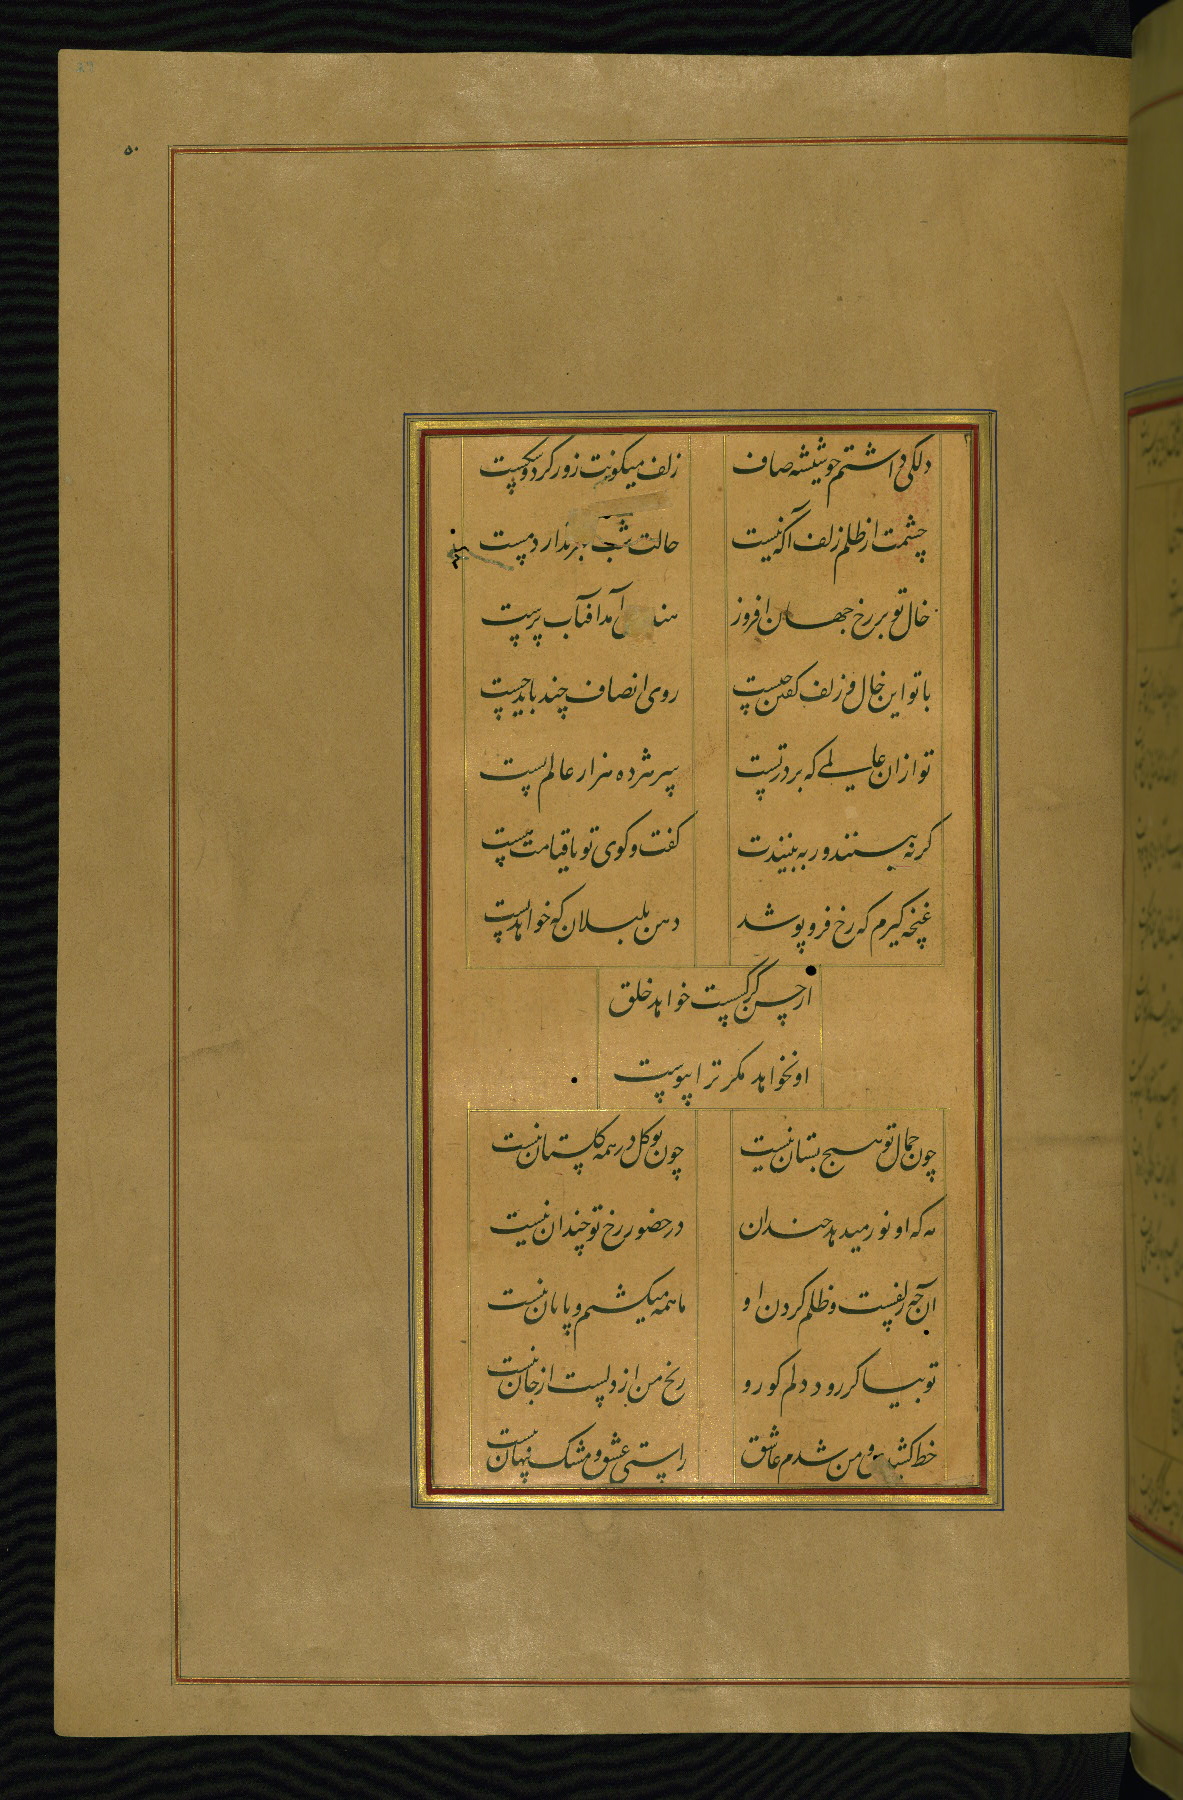 ۵۰
دلکی داشتم چو شیشه صاف
زلف میکونت زور کرد و شکست
چشمت از ظلم زلف آکه نیست
حالت شب خبر ندارد مست
خال تو بر رخ جهان افروز
آمد آفتاب پرست
با تو این خال و زلف کفتن چیست
روی انصاف چند باید جست
تو از ان عالمی که بر در تست
سر هژده هزار عالم بست
کر نه بیستند ور به بینندت
کفت و کوی تو تا قیامت هست
غنچه کیرم که رخ فرو پوشد
دهن بلبلان که خواهد بست
ار حسن کر کسست خواهد خلق
او نخواهد مکر ترا پیوست
چون جمال تو هیچ بستان نیست
چون تو کل در همه کلستان نیست
مه که او نور میدهد چندان
در حضور رخ تو چندان نیست
آن چه زلفست و ظلم کردن او
ما همه میکشیم و پایان نیست
تو بیا کر رود دلم کو رو
رنج من از دلست از جان نیست
خط کشیدی و من شدم عاشق
راستی عشق و مشک پنهان نیست